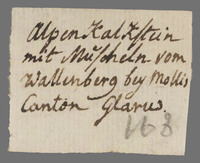 Alpen Kalkstein
mit Muscheln vom
Wallenberg bey Mollis
Canton Glarus.
168